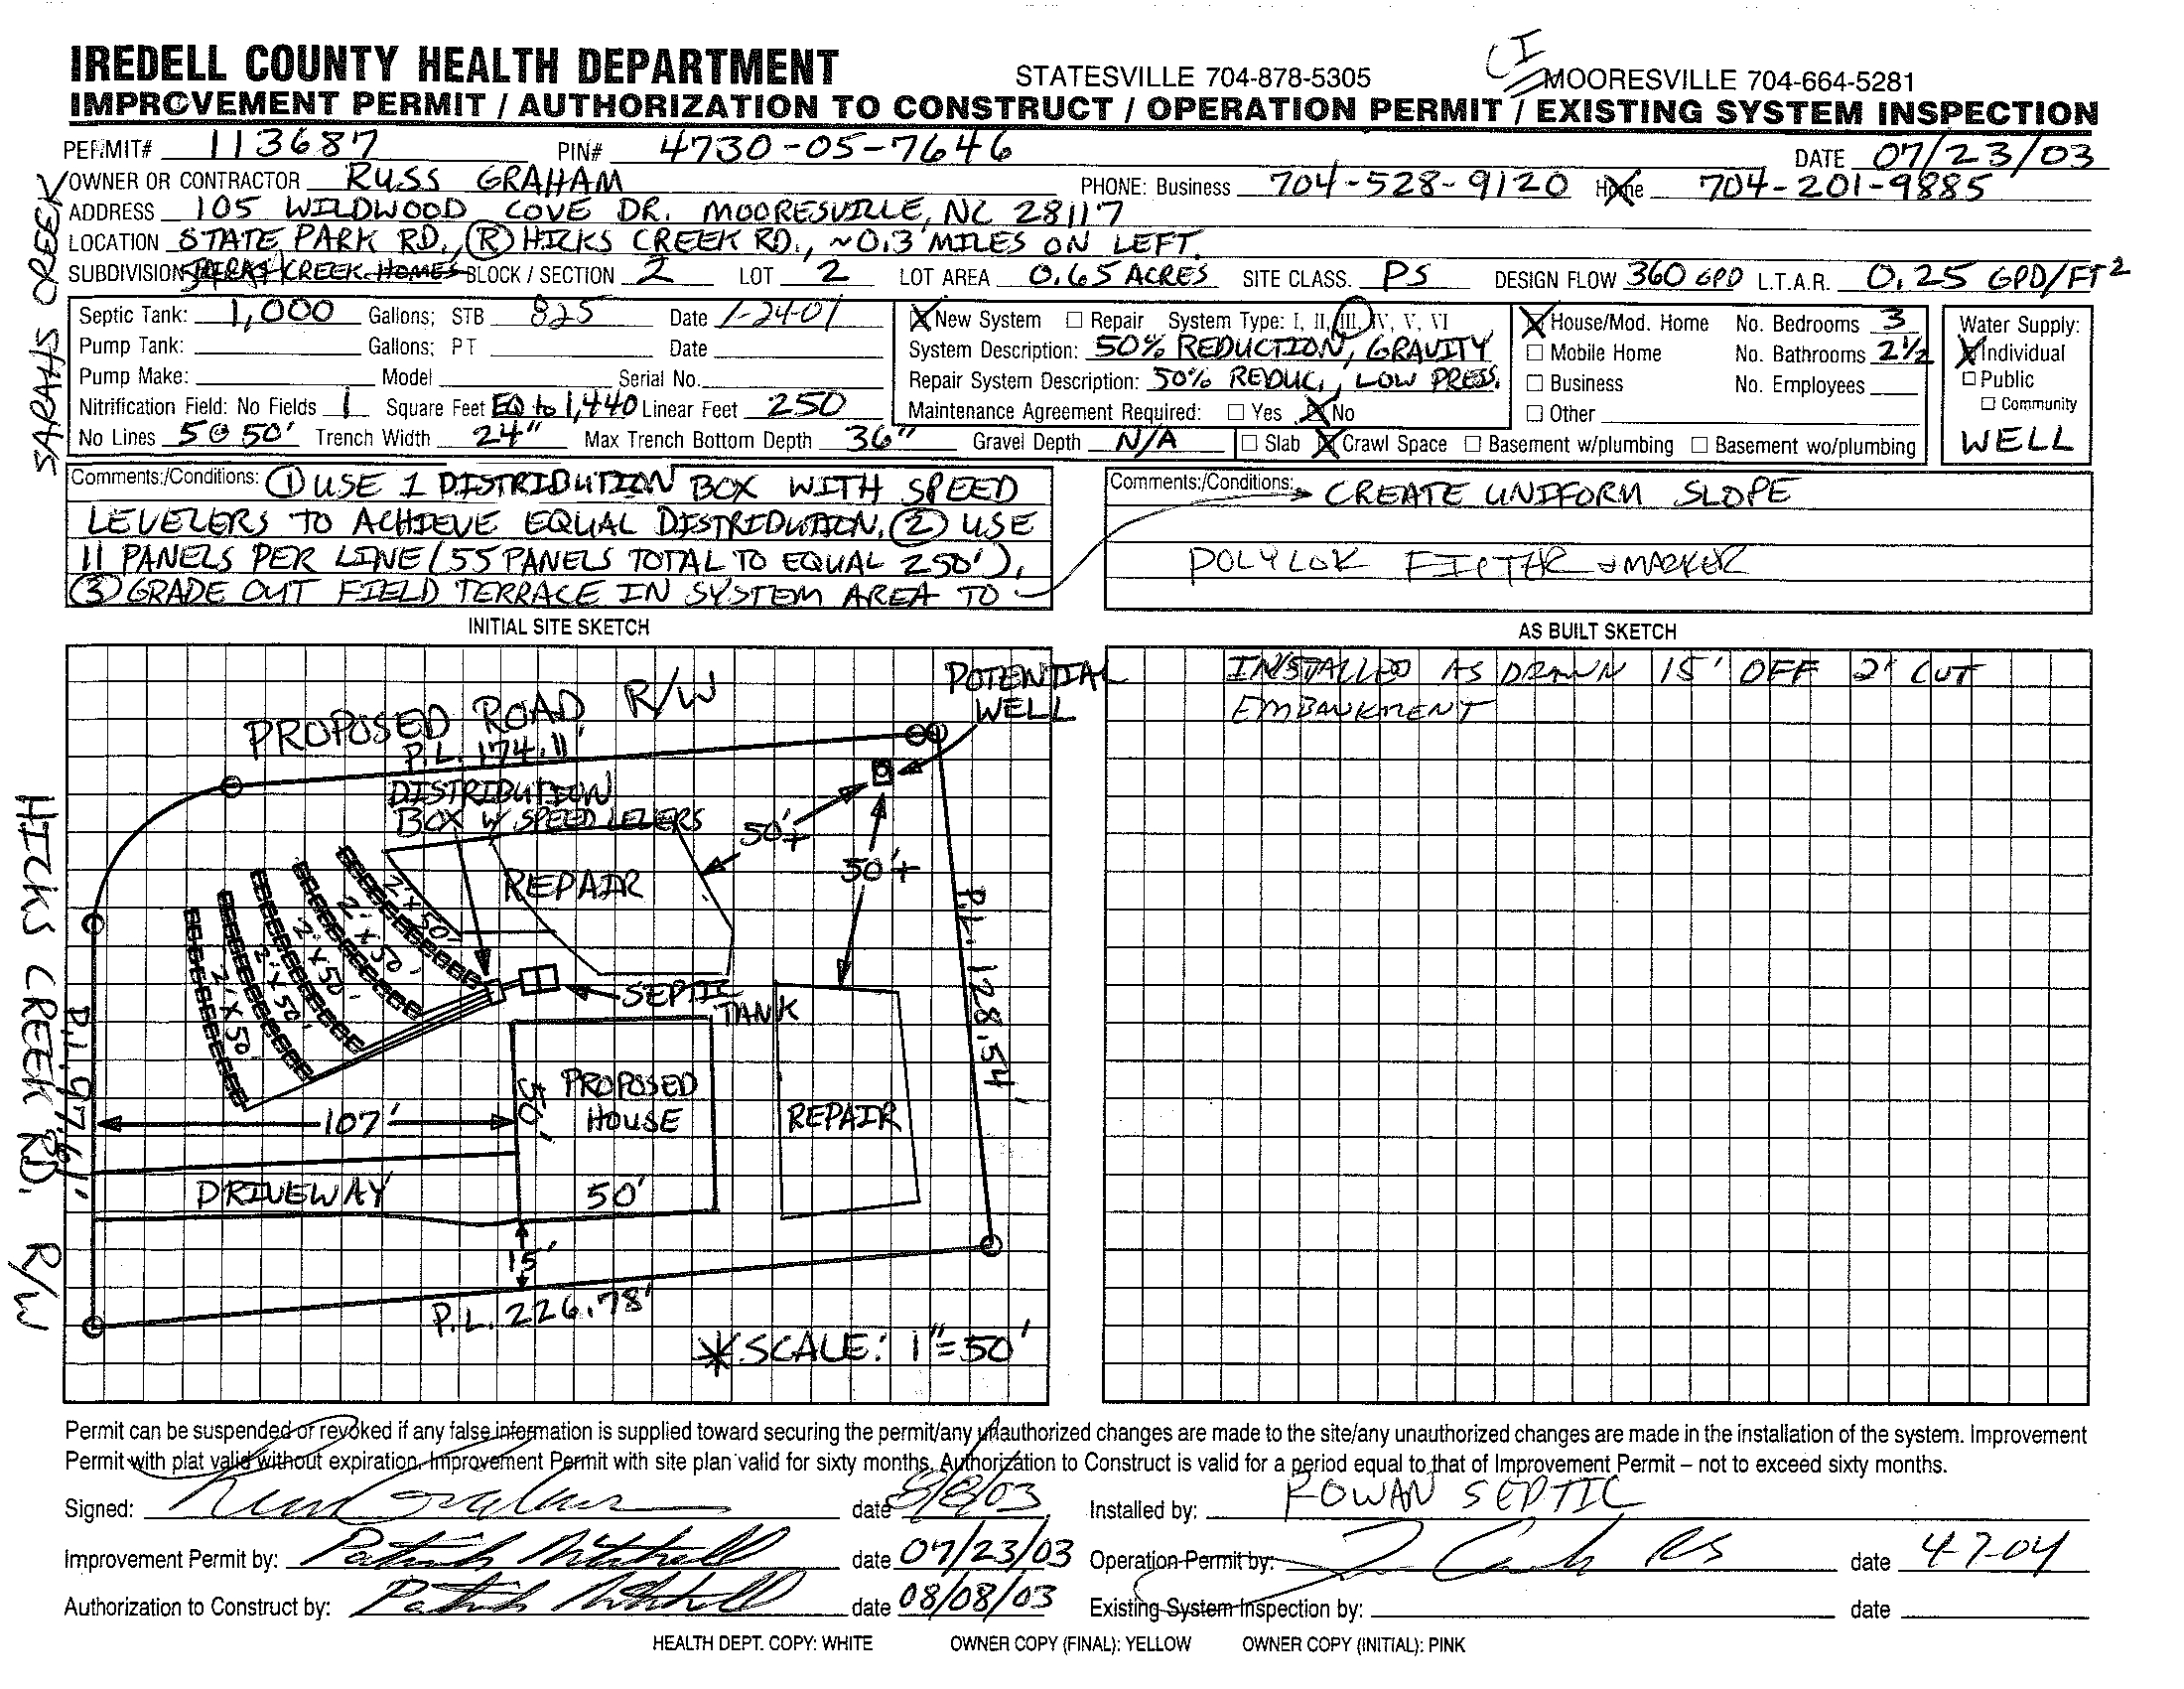 CI
IREDELL COUNTY HEALTH DEPARTMENT STATESVILLE 704-878-5305 MOORESVILLE 704-664-5281
IMPROVEMENT PERMIT / AUTHORIZATION TO CONSTRUCT / OPERATION PERMIT / EXISTING SYSTEM INSPECTION
PERMIT# 113687 PIN# 4730-05-7646 DATE 07/23/03
OWNER OR CONTRACTOR RUSS GRAHAM PHONE: Business 704-528-9120 Home 704-201-9885
ADDRESS 105 WILDWOOD COVE DR. MOORESVILLE, NC 28117
LOCATION STATE PARK RD, (R) HICKS CREEK RD., ~0.3 MILES ON LEFT.
SUBDIVISION CREEK HOMES BLOCK / SECTION 2 LOT 2 LOT AREA 0.65 ACRES SITE CLASS. PS DESIGN FLOW 360 GPD L.T.A.R. 0.25 GPD/FT2
SARAHS CREEK
Septic Tank: 1,000 Gallons; STB 825 Date 1-24-01
Pump Tank: Gallons; PT Date
Pump Make: Model Serial No.
Nitrification Field: No Fields 1 Square Feet EQ to 1,440 Linear Feet 250
No Lines 5@50' Trench Width 24" Max Trench Bottom Depth 36" Gravel Depth N/A
X New System Repair System Type: I, II, III, IV, V, VI
System Description: 50% REDUCTION, GRAVITY
Repair System Description: 50% REDUC., LOW PRESS.
Maintenance Agreement Required: Yes X No
Slab X Crawl Space Basement w/plumbing Basement wo/plumbing
X House/Mod. Home No. Bedrooms 3
Mobile Home No. Bathrooms 2 1/2
Business No. Employees
Other
Water Supply:
X Individual
Public
Community
WELL
Comments:/Conditions: (1) USE 1 DISTRIBUTION BOX WITH SPEED
LEVELERS TO ACHIEVE EQUAL DISTRIBUTION. (2) USE
11 PANELS PER LINE (55 PANELS TOTAL TO EQUAL 250'),
(3) GRADE OUT FIELD TERRACE IN SYSTEM AREA TO
Comments:/Conditions: CREATE UNIFORM SLOPE
POLYLOK FILTER & MARKER
INITIAL SITE SKETCH
PROPOSED ROAD R/W
POTENTIAL
WELL
P.L. 174.11'
DISTRIBUTION
BOX W/ SPEED LEVELERS
50'+
50'+
REPAIR
2'x50'
2'x50'
2'x50'
2'x50'
2'x50'
SEPTIC
TANK
P.L. 128.54'
HICKS CREEK RD. R/W
P.L. 97.61'
107'
50'
PROPOSED
HOUSE
50'
REPAIR
DRIVEWAY
15'
P.L. 226.78'
*SCALE: 1"=50'
AS BUILT SKETCH
INSTALLED AS DRAWN 15' OFF 2' CUT
EMBANKMENT
Permit can be suspended or revoked if any false information is supplied toward securing the permit/any unauthorized changes are made to the site/any unauthorized changes are made in the installation of the system. Improvement
Permit with plat valid without expiration, Improvement Permit with site plan valid for sixty months. Authorization to Construct is valid for a period equal to that of Improvement Permit – not to exceed sixty months.
Signed: date 8/8/03 Installed by: ROWAN SEPTIC
Improvement Permit by: Patrick Mitchell date 07/23/03 Operation Permit by: RS date 4-7-04
Authorization to Construct by: Patrick Mitchell date 08/08/03 Existing System Inspection by: date
HEALTH DEPT. COPY: WHITE OWNER COPY (FINAL): YELLOW OWNER COPY (INITIAL): PINK